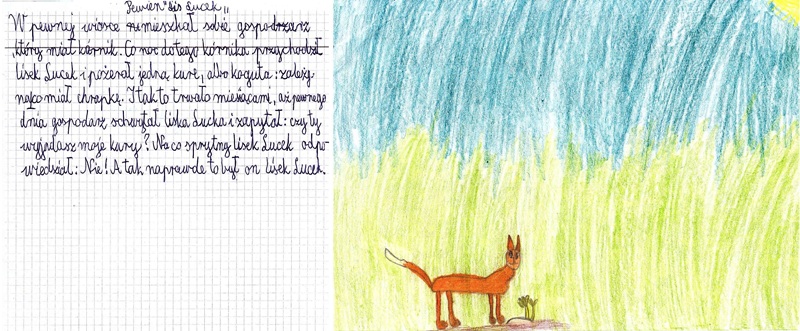 Pewien "Lis Lucek"
W pewnej wiosce zamieszkał sobie gospodrzarz
który miał kórnik. Co noc do tego kórnika przychodził
lisek Lucek i pożerał jedną kurę, albo koguta: zależy
na co miał chrapkę. I tak to trwało miesiącami, aż pewnego
dnia gospodarz schwytał liska Lucka i zapytał: czy ty
wyjadasz moje kury? Na co sprytny lisek Lucek odpo-
wiedział: Nie! A tak naprawde to był on lisek Lucek.